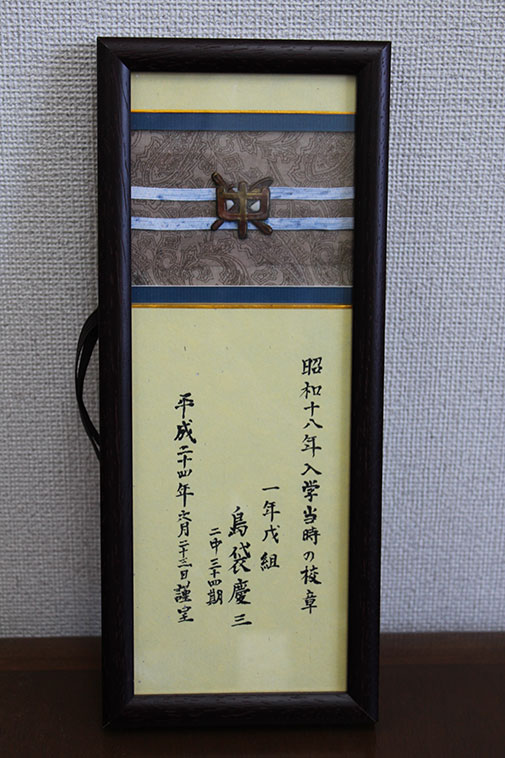 中
昭和十八年入学当時の校章
一年戊組
島袋慶三
二中三十四期
平成二十四年六月二十三日謹呈